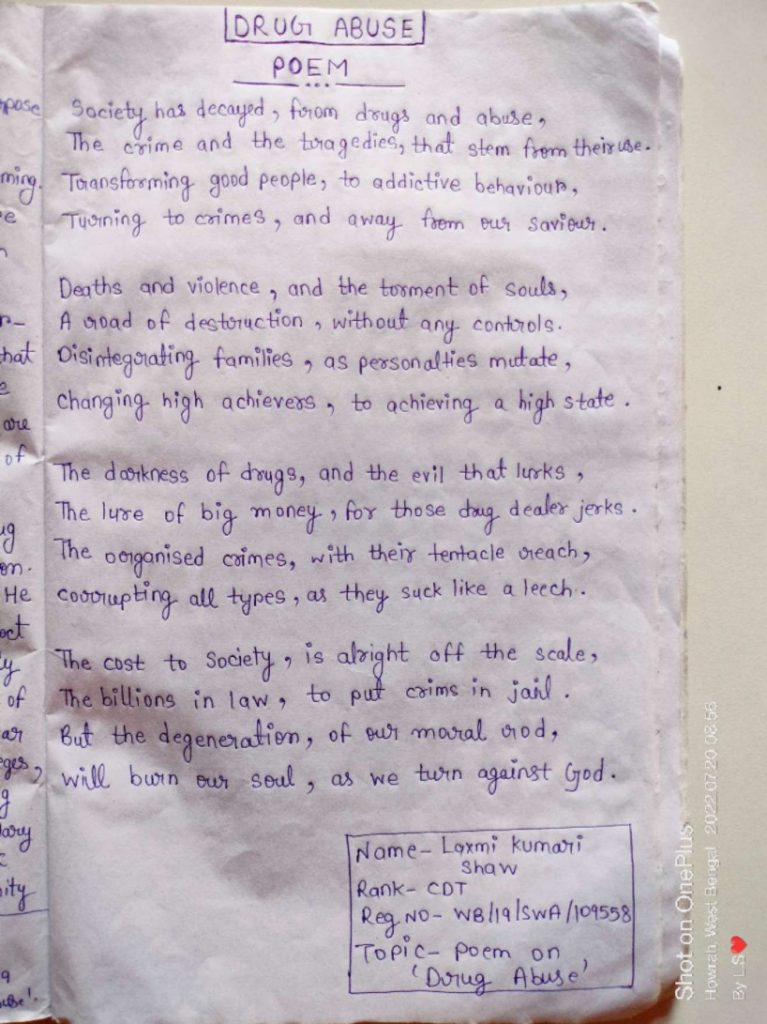 DRUG ABUSE
POEM
Society has decayed, from drugs and abuse,
The crime and the tragedies, that stem from their use.
Transforming good people, to addictive behaviour,
Turning to crimes, and away from our saviour.
Deaths and violence, and the torment of souls,
A road of destruction, without any controls.
Disintegrating families, as personalties mutate,
changing high achievers, to achieving a high state.
The darkness of drugs, and the evil that lurks,
The lure of big money, for those drug dealer jerks.
The organised crimes, with their tentacle reach,
corrupting all types, as they suck like a leech.
The cost to Society, is alright off the scale,
The billions in law, to put crims in jail.
But the degeneration, of our moral rod,
will burn our soul, as we turn against God.
Name- Laxmi Kumari
Shaw
Rank- CDT
Reg NO- WB/19/SWA/109558
Topic- Poem on
'Drug Abuse'
ming.
hat
are
of
He
of
Shot on OnePlus
Howrah, West Bengal 2022.07.20 08:56
By L.S❤